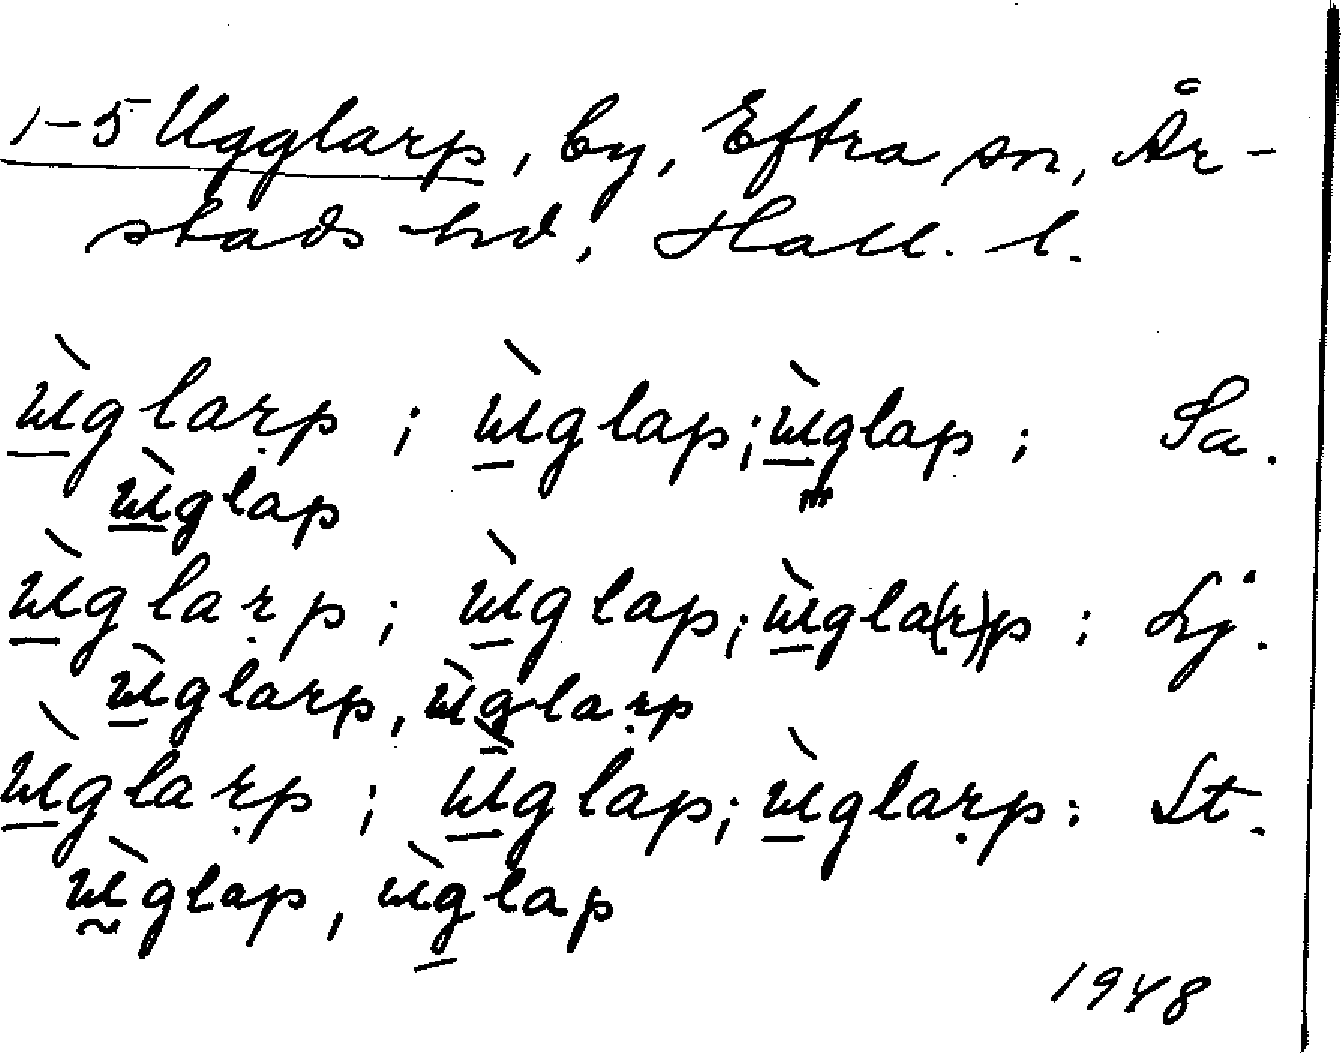 1-5 Ugglarp, by, Eftra sn, År-
stads hd, Hall. l.
ùglarp ; ùglap; ùglap ; Sa.
ùglap
ùglarp ; ùglap; ùgla(r)p : Lj.
ùglarp, ùglarp
ùglarp ; ùglap; ùglarp : St.
ùglap, ùglap
1948